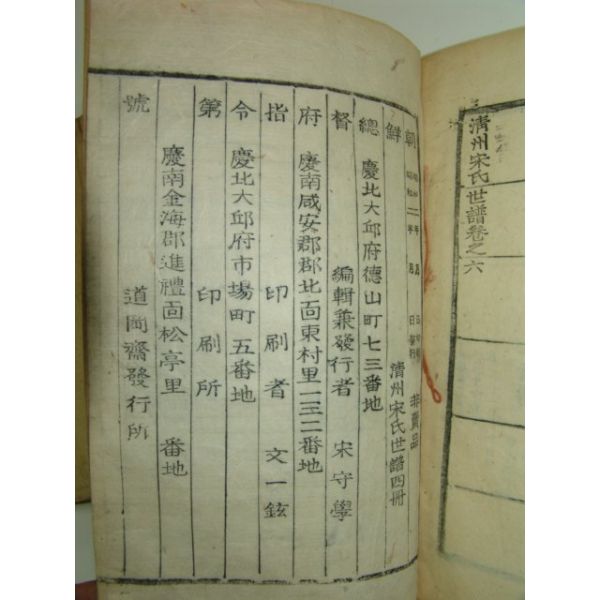 清州宋氏世譜卷之六
朝 非賣品
鮮 清州宋氏世譜四冊
總 慶北大邱府德山町七三番地
督 編輯兼發行者 宋守學
府 慶南咸安郡郡北面東村里一三二番地
指 印刷者 文一鉉
令 慶北大邱府市場町五番地
第 印刷所
慶南金海郡進禮面松亭里 番地
號 道岡齋發行所